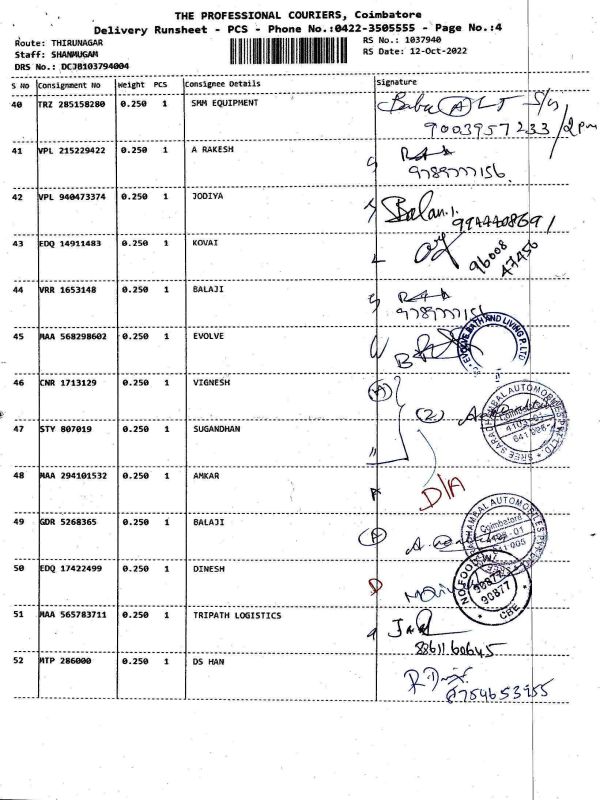 THE PROFESSIONAL COURIERS, Coimbatore
Delivery Runsheet - PCS - Phone No.:0422-3505555 - Page No.:4
Route: THIRUNAGAR
Staff: SHANMUGAM
DRS No.: DCJB103794004
RS No.: 1037940
RS Date: 12-Oct-2022
S No Consignment No Weight PCS Consignee Details Signature
40 TRZ 285158280 0.250 1 SMM EQUIPMENT
9003957233 / 2pm
41 VPL 215229422 0.250 1 A RAKESH
9789777156
42 VPL 940473374 0.250 1 JODIYA
Balan.
43 EDQ 14911483 0.250 1 KOVAI
96008
47456
44 VRR 1653148 0.250 1 BALAJI
45 MAA 568298602 0.250 1 EVOLVE
EVOLVE BATH AND LIVING P. LTD
46 CNR 1713129 0.250 1 VIGNESH
(A)
(2)
SREE SARADHAMBAL AUTOMOBILES PVT LTD
Coimbatore
47 STY 807019 0.250 1 SUGANDHAN
48 MAA 294101532 0.250 1 AMKAR
D/A
49 GDR 5268365 0.250 1 BALAJI
(A)
Coimbatore
50 EDQ 17422499 0.250 1 DINESH
D
90877
90877
CBE
51 MAA 565783711 0.250 1 TRIPATH LOGISTICS
88611 60645
52 MTP 286000 0.250 1 DS HAN